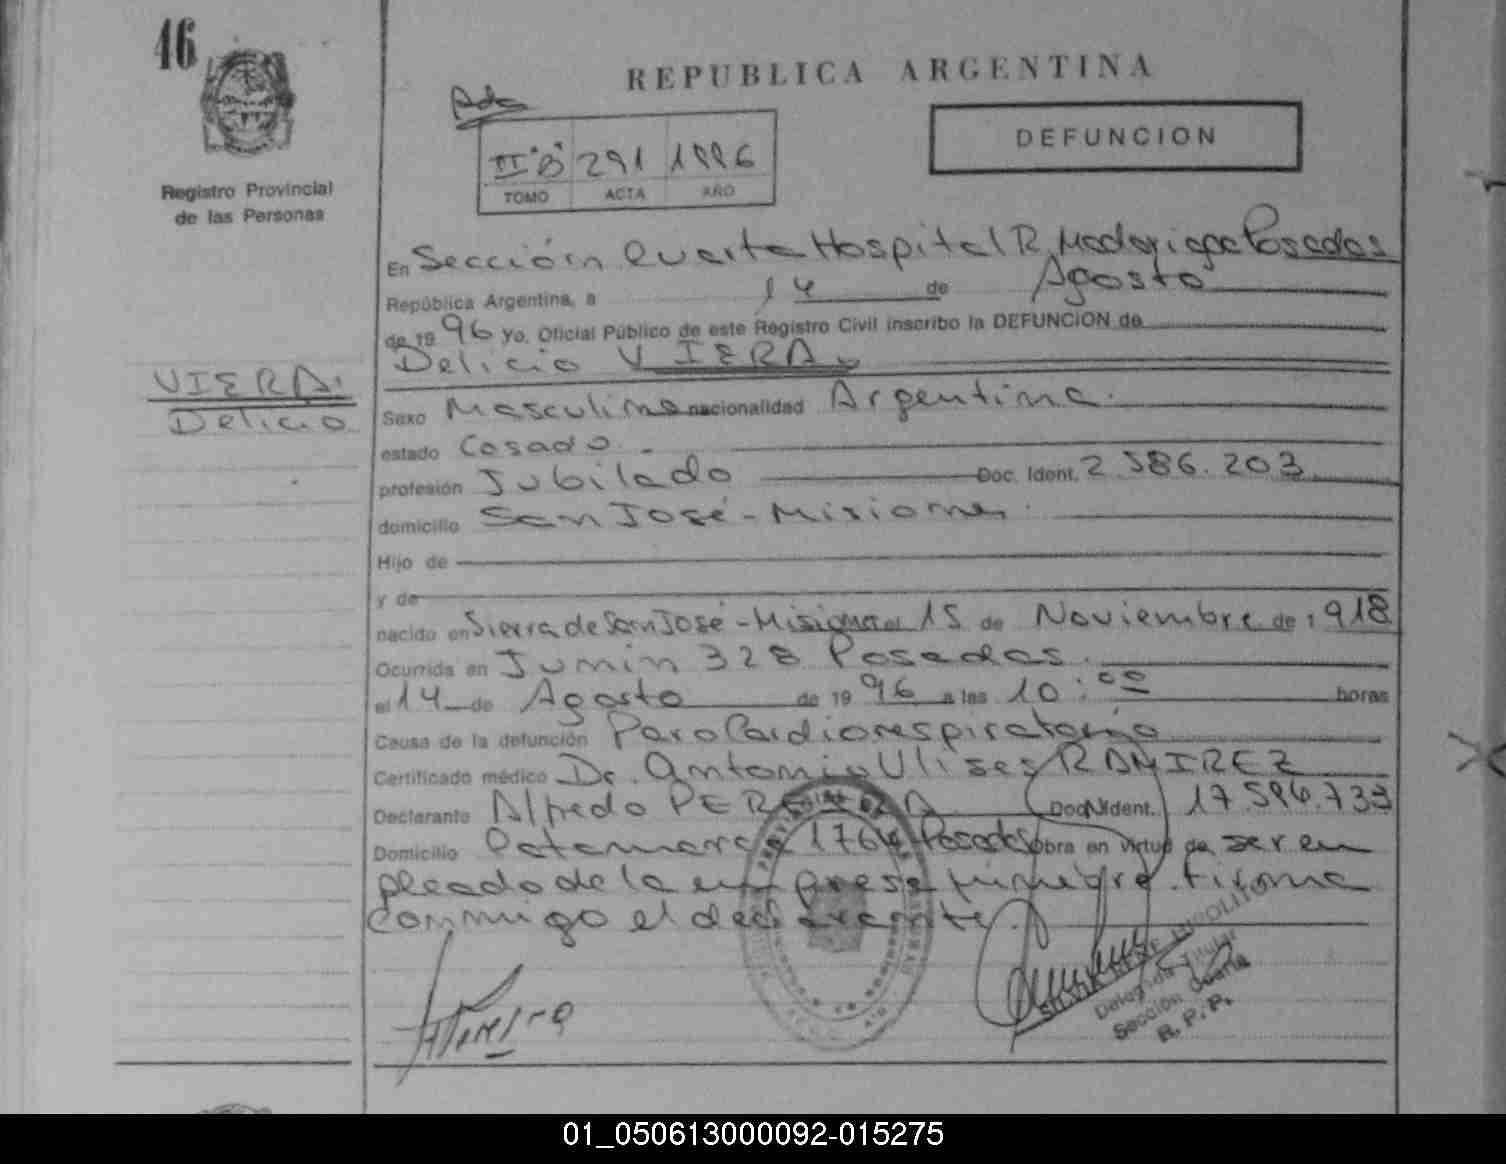 46
REPUBLICA ARGENTINA
Pda
DEFUNCION
II "B" 291 1996
TOMO ACTA AÑO
Registro Provincial
de las Personas
En Sección Cuarta Hospital R. Madariaga Posadas
República Argentina, a 14 de Agosto
de 19 96 Yo, Oficial Público de este Registro Civil inscribo la DEFUNCION de
Delicio VIERA
VIERA
Delicio
Sexo Masculino nacionalidad Argentina.
estado Casado.-
profesión Jubilado Doc. Ident. 2586.203
domicilio San José - Misiones.
Hijo de
y de
nacido en Sierra de San José - Misiones el 15 de Noviembre de 1918
Ocurrida en Junin 328 Posadas.
el 14 de Agosto de 19 96 a las 10:00 horas
Causa de la defunción Paro Cardiorespiratorio
Certificado médico Dr. Antonio Ulises RAMIREZ
Declarante Alfredo PEREIRA Doc. Ident. 17.596.733
Domicilio Catamarca 1764 Posadas obra en virtud de ser em
pleado de la empresa firma
conmigo el declarante.
HIPOLITO
Delegada Titular
Sección Cuarta
R. P. P.
01_050613000092-015275